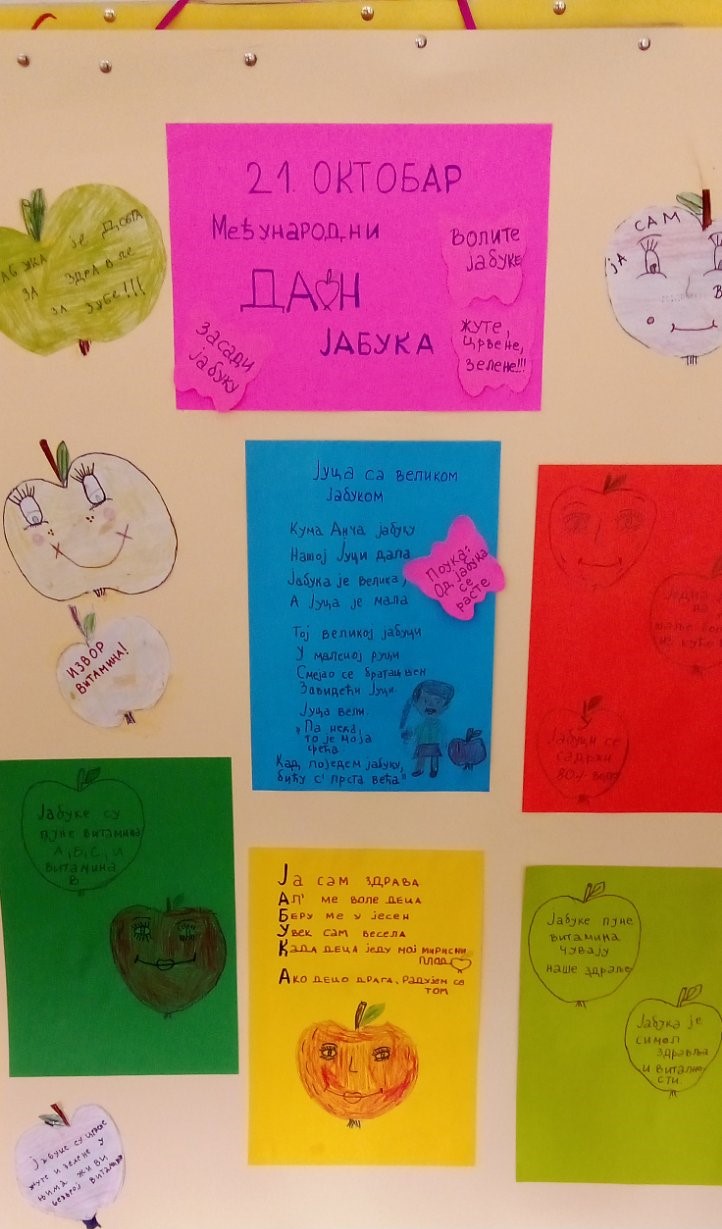 21. ОКТОБАР
Међународни
ДАН
ЈАБУКА
Волите
јабуке
жуте,
црвене,
зелене!!!
Засади
јабуку
је добра
за здравље
за зубе!!!
ЈА САМ
ИЗВОР
ВИТАМИНА!
Јуца са великом
јабуком
Кума Анча јабуку
Нашој Јуци дала
Јабука је велика,
А Јуца је мала
Тој великој јабуци
У маленој руци
Смејао се братац њен
Завидећи Јуци
Јуца вели:
„Па нека,
то је моја
срећа
Кад поједем јабуку,
бићу с' прста већа"
Поука:
Од јабука
се
расте
Једна
из куће
Јабуци се
садржи
80%
Јабуке су
пуне витамина
А, В, С, и
витамина
В
Ја сам здрава
Ал' ме воле деца
Беру ме у јесен
Увек сам весела
Када деца једу мој мирисни
плод
Ако децо драга, радујем се
том
Јабуке пуне
витамина
чувају
наше здравље
Јабука је
симбол
здравља
и виталности.
Јабуке су црвене
жуте и зелене у
њима живи
безброј витамина